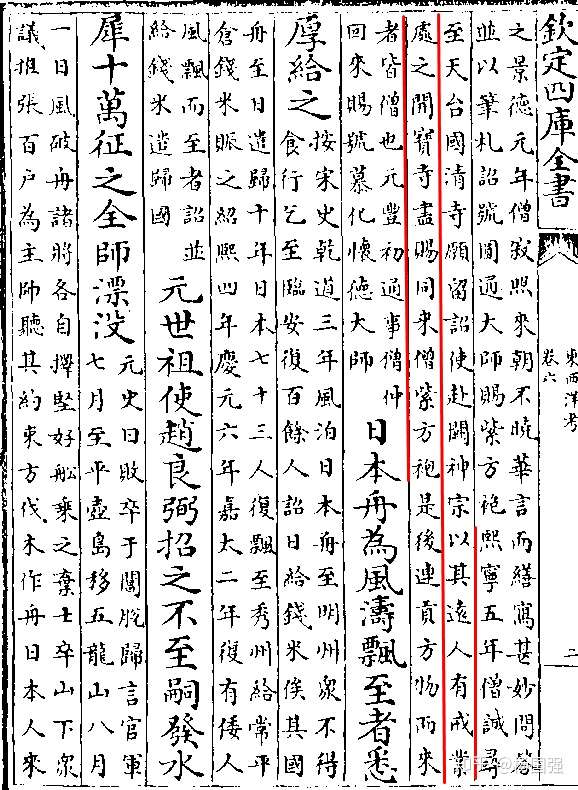 欽定四庫全書
東西洋考
卷六
二
之景德元年僧寂照來朝不曉華言而繕寫甚妙問答
並以筆札詔號圓通大師賜紫方袍熙寧五年僧誠尋
至天台國清寺願留詔使赴闕神宗以其遠人有戒業
處之開寶寺盡賜同來僧紫方袍是後連貢方物而來
者皆僧也元豐初通事僧仲
回來賜號慕化懷德大師
日本舟為風濤飄至者悉
厚給之
按宋史乾道三年風泊日本舟至明州衆不得
食行乞至臨安復百餘人詔日給錢米俟其國
舟至日遣歸十年日本七十三人復飄至秀州給常平
倉錢米賑之紹熙四年慶元六年嘉太二年復有倭人
風飄而至者詔並
給錢米遣歸國
元世祖使趙良弼招之不至嗣發水
犀十萬征之全師漂没
元史曰敗卒于閶脫歸言官軍
七月至平壺島移五龍山八月
一日風破舟諸將各自擇堅好船乘之棄士卒山下衆
議推張百户為主師聽其約束方伐木作舟日本人來
知乎
国强